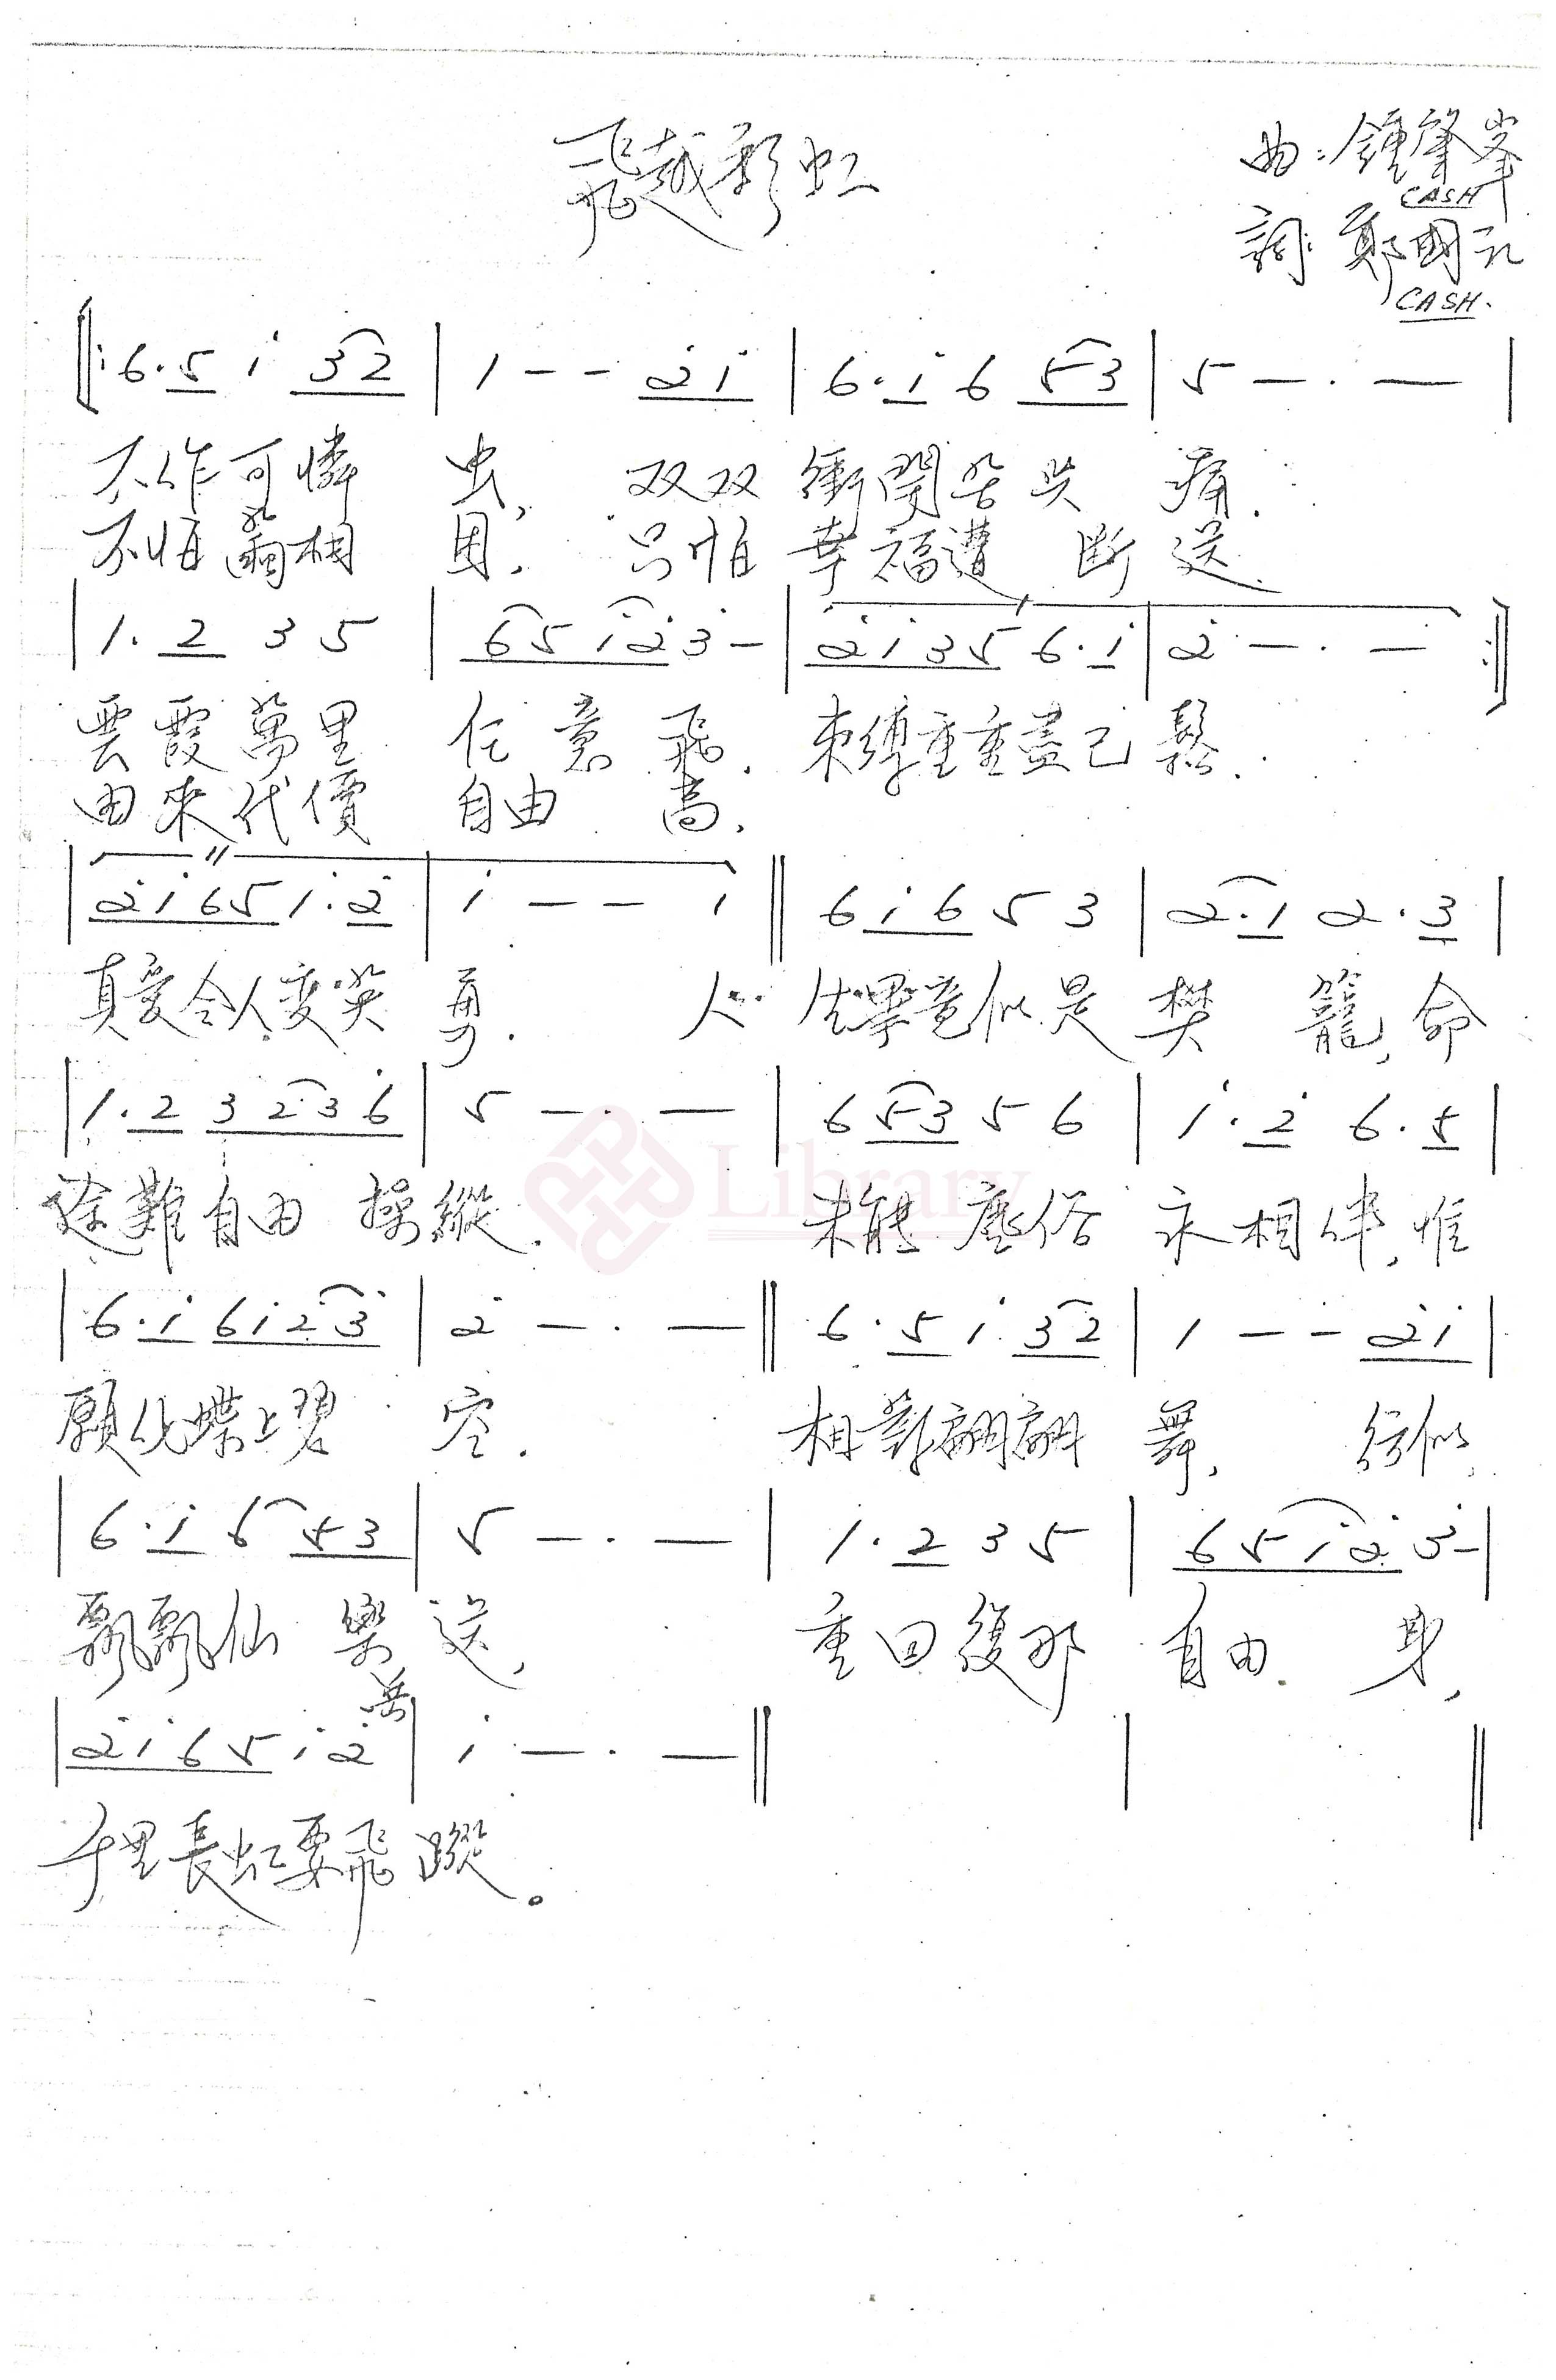 飛越彩虹
曲：鍾肇峯
CASH
詞：鄭國江
CASH.
‖: 6. 5 i 3 2 | 1 - - 2̇ i | 6. i 6 5 3 | 5 - · - |
不作可憐 虫， 双双 衝開苦與 痛．
不怕繭相 困， 只怕 幸福遭 斷 送．
| 1. 2 3 5 | 6 5 i 2̇ 3̇ - | 2̇ i 3 5 6. i | 2̇ - · - :‖
雲霞萬里 任意 飛． 束縛重重盡已 鬆．
由來代價 自由 高．
| 2̇ i 6 5 1. 2̇ | i - - i ‖ 6 i 6 5 3 | 2. 1 2. 3 |
真愛令人變英 勇． 人 生畢竟似是 樊 籠，命
| 1. 2 3 2 3 6 | 5 - · - | 6 5 3 5 6 | i. 2̇ 6. 5 |
途難自由 操縱． 未能 塵俗 永相伴，惟
Library
| 6. i 6 i 2̇ 3̇ | 2̇ - · - ‖ 6. 5 i 3 2 | 1 - - 2̇ i |
願化蝶上碧 空． 相對翩翩 舞， 衍似
| 6. i 6 5 3 | 5 - · - | 1. 2 3 5 | 6 5 i 2̇ 3̇ - |
飄飄仙 樂 送， 重回復那 自由 身，
| 2̇ i 6 5 i 2̇ | i - · - ‖ | ‖
千里長虹要飛 蹤。